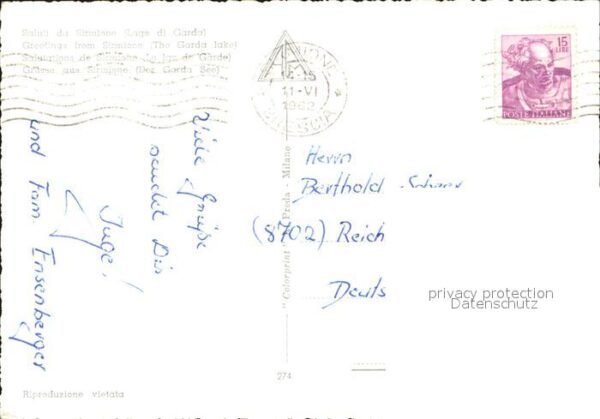 Saluti da Sirmione (Lago di Garda)
Greetings from Sirmione (The Garda lake)
Salutations de Sirmione (Le lac de Garde)
Grüsse aus Sirmione (Der Garda See)
SIRMIONE
11-VI
1962
BRESCIA
15
LIRE
POSTE ITALIANE
Viele Grüße
sendet Dir
Inge!
und Fam. Ensenberger
"Colorprint" Preda - Milano
Herrn
Berthold
(8702) Reich
Deuts
privacy protection
Datenschutz
274
Riproduzione vietata